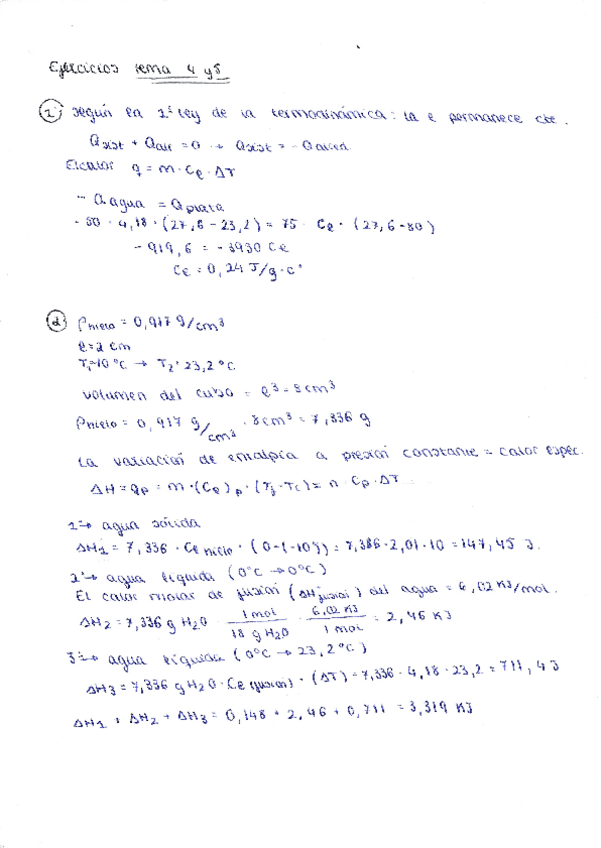 Ejercicios tema 4 y 5
1) Según la 1ª Ley de la termodinámica: la e permanece cte.
Qsist + Qalr = 0 → Qsist = -Qalred
El calor q = m · Ce · ΔT
- Qagua = Qplata
- 50 · 4,18 · (27,6 - 23,2) = 75 · Ce · (27,6 - 80)
- 919,6 = - 3930 Ce
Ce = 0,24 J/g·Cº
2) ρhielo = 0,917 g/cm³
l = 2 cm
T₁ = -10 ºC → T₂ = 23,2 ºC
Volumen del cubo = l³ = 8 cm³
ρhielo = 0,917 g/cm³ · 8 cm³ = 7,336 g
La variación de entalpía a presión constante = calor espec.
ΔH = qp = m · (Ce)p · (Tf - Tc) = n · Cp · ΔT
1º → agua sólida
ΔH₁ = 7,336 · Ce hielo · (0 - (-10)) = 7,336 · 2,01 · 10 = 147,45 J.
2º → agua líquida (0ºC → 0ºC)
El calor molar de fusión (ΔHfusión) del agua = 6,02 KJ/mol.
ΔH₂ = 7,336 g H₂O · 1 mol / 18 g H₂O · 6,02 KJ / 1 mol = 2,46 KJ
3º → agua líquida (0ºC → 23,2ºC)
ΔH₃ = 7,336 g H₂O · Ce (fusión) · (ΔT) = 7,336 · 4,18 · 23,2 = 711,4 J
ΔH₁ + ΔH₂ + ΔH₃ = 0,148 + 2,46 + 0,711 = 3,319 KJ